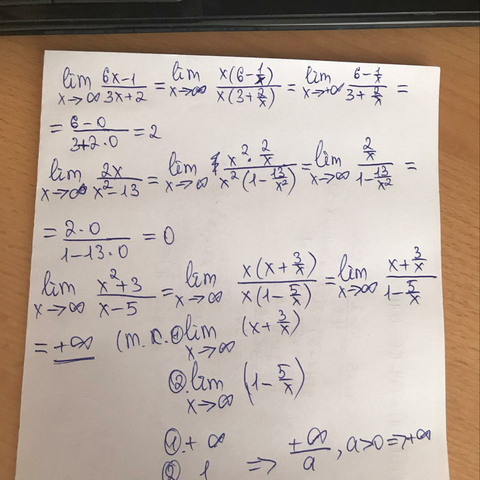 lim x→∞ (6x-1)/(3x+2) = lim x→∞ x(6-1/x)/x(3+2/x) = lim x→+∞ (6-1/x)/(3+2/x) =
= (6-0)/(3+2·0) = 2
lim x→∞ 2x/(x²-13) = lim x→∞ (x²·2/x)/(x²(1-13/x²)) = lim x→∞ (2/x)/(1-13/x²) =
= (2·0)/(1-13·0) = 0
lim x→∞ (x²+3)/(x-5) = lim x→∞ x(x+3/x)/x(1-5/x) = lim x→∞ (x+3/x)/(1-5/x)
= +∞ (т.к. ① lim x→∞ (x+3/x)
② lim x→∞ (1-5/x)
① +∞
② 1 ⇒ +∞/a, a>0 ⇒ +∞